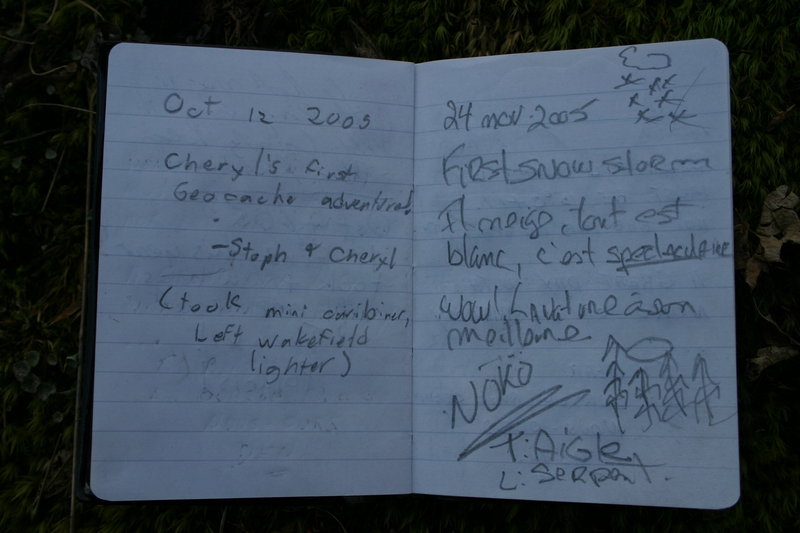 Oct 12 2005
Cheryl's first
Geocache adventure!
- Stoph & Cheryl
(took mini caribiner,
Left wakefield
lighter)
24 nov. 2005
First snow storm
Il neige, tout est
blanc, c'est spectaculaire
wow! L'automne à son
meilleure
NOKO
T: Aigle
L: Serpent.